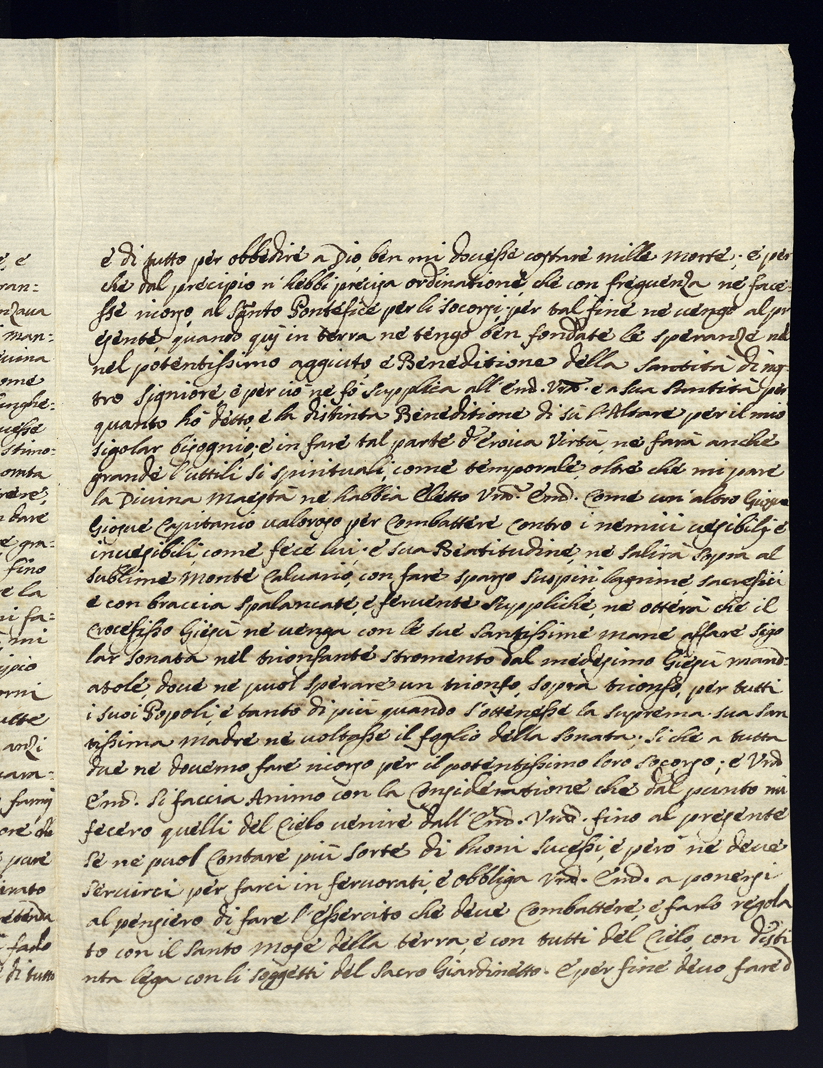 e di tutto per obbedire a Dio ben mi dovesse costare mille morte; e per
che dal precipio n'hebbi preciza ordinatione che con frequenza ne face-
sse ricorso al Santo Pontefice per li socorsi per tal fine ne vengo al pr
esente quando quj in terra ne tengo ben fondate le speranze nel
nel potentissimo aggiuto e Beneditione della Santità di nos-
tro Signiore e per ciò ne fò supplica all'Emd. Vrd. e a sua Santità per
quanto hò detto e la distinta Beneditione di sù l'Altare per il mio
sigolar bisognio; e in fare tal parte d'Eroica Virtù, ne farà anche
grande l'uttili si spirituali, come temporale, oltre che mi pare
la Divina Maestà ne habbia Eletto Vrd. Emd. Come un altro Giosue
Giosue Capitanio valoroso per Combattere contro i nemici vesibilj e
invesibili come fece lui e sua Beatitudine, ne salirà soprà al
sublime Monte Calvario, con fare sparso suspiri lagrime sacrefici
e con braccia spalancate, e fervente suppliche, ne otterà che il
crocefisso Giesù ne venga con le sue Santissime mane affare sigo
lar sonata nel trionfante stromento dal medesimo Giesù mand-
atole, dove ne puol sperare un trionfo, soprà trionfo, per tutti
i suoi Popoli, e tanto di più quando s'ottenesse la suprema sua san
tissima madre ne voltasse il foglio della sonata; si che a tutta
due ne dovemo fare ricorso per il potentissimo loro socorso; e Vrd
Emd. si faccia Animo con la Consideratione che dal punto mi
fecero quelli del Cielo venire dall'Emd. Vrd. fino al presente
se ne puol Contare più sorte di buoni sucessi, e però ne deve
servirci per farci in fervorati, e obbliga Vrd. Emd. a ponersi
al pensiero di fare l'Essercito che deve Combattere, e farlo regola
to con il Santo Mosè della terra, e con tutti del Cielo, con disti
nta lega con li soggetti del Sacro Giardinetto. E per fine devo fare d
e, e
ran-
nzava
man-
ivina
ome
uesse
stimo-
fino
e la
ni fa-
mi
utte
fami
pure
farlo
di tutto